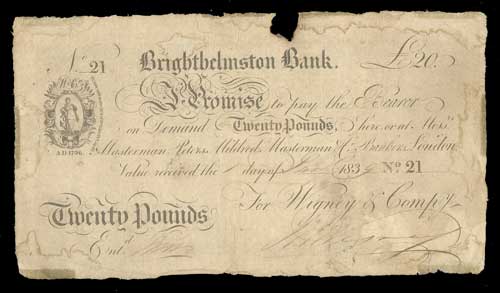 No. 21 Brighthelmston Bank. £20.
W & Co
A.D. 1796.
I Promise to pay the Bearer
on Demand Twenty Pounds, here or at Messrs
Masterman, Peters, Mildred, Masterman & Co. Bankers London
Value received the 1 day of 1834 No 21
Twenty Pounds For Wigney & Compy.
Entd.